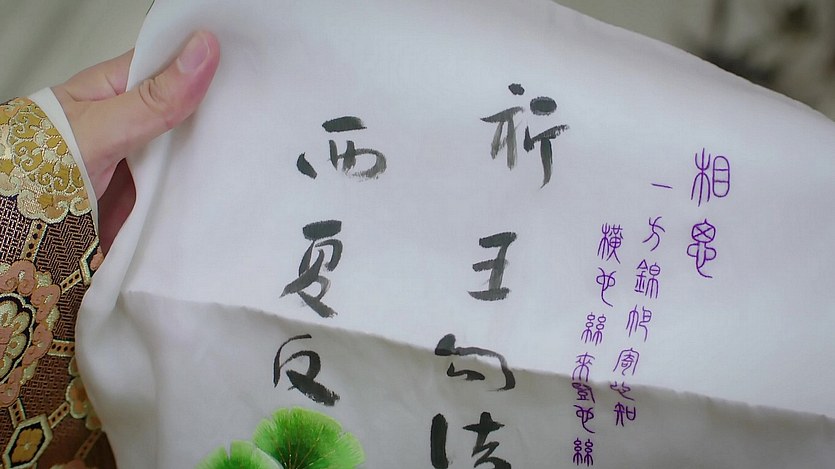 相思
一方錦帕寄心知
橫也絲來豎也絲
祈王勾结
西夏反